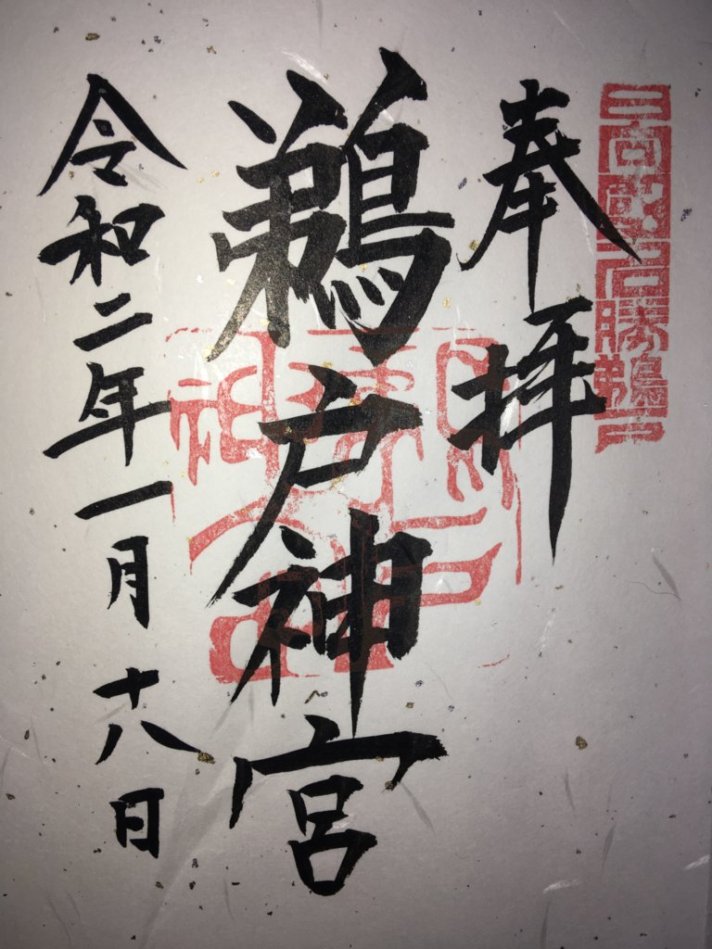 日向國名勝鵜戸
奉拝
鵜戸神宮
令和二年一月十八日